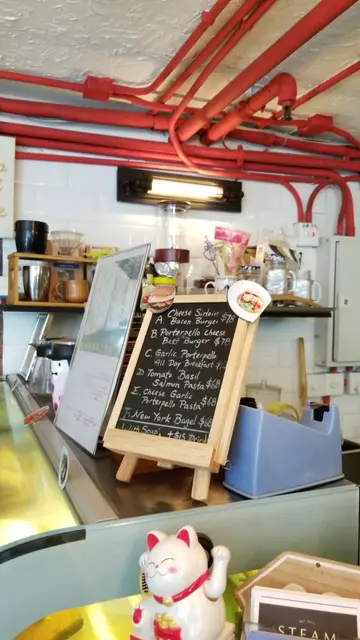 A. Cheese Sirloin
Bacon Burger $78
B. Porterpello cheese
Beef Burger $78
C. Garlic Porterpello
All Day Breakfast
D. Tomato Basil
Salmon Pasta $68
E. Cheese Garlic
Portepello Pasta $68
F. New York Bagel $68
with Soup, +$15 Drink
STEAM